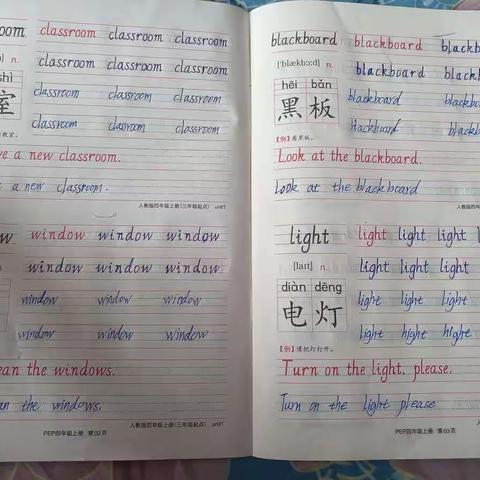 classroom classroom classroom
classroom classroom classroom
shì
室 classroom classroom classroom
教室。 classroom classroom classroom
a new classroom.
a new classroom.
人教版四年级上册(三年级起点) unit1
window window window
window window window
window window window
window window window
an the windows.
an the windows.
人教版四年级上册(三年级起点) unit1
PEP四年级上册·第02页
blackboard blackboard
['blækbɔ:d] n. blackboard
hēi bǎn
黑板 blackboard
【例】看黑板。 blackboard
Look at the blackboard.
Look at the blackboard
light light light light
[lait] n. light light light
diàn dēng
电灯 light light light
light hight hight
【例】请把灯打开。
Turn on the light, please.
Turn on the light please
PEP四年级上册·第03页